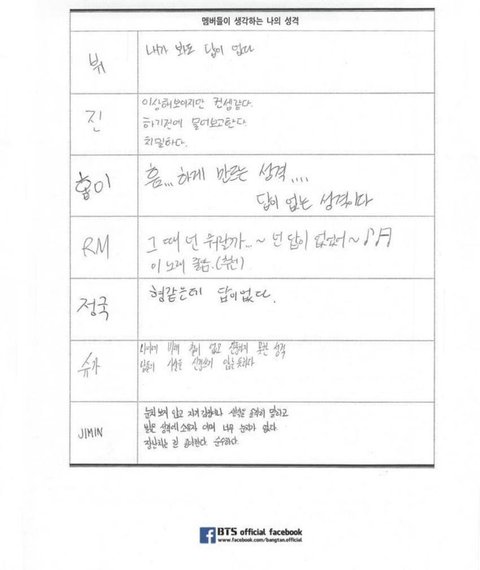 멤버들이 생각하는 나의 성격
뷔
내가 봐도 답이 없다
진
이상해보이지만 컨셉같다.
하기전에 물어보고한다.
치밀하다.
홉이
흠... 하게 만드는 성격....
답이 없는 성격이다
RM
그 때 넌 뭐랄까...~ 넌 답이 없었어~ ♪♬
이 노래 좋음.(추천)
정국
형같은데 답이없다.
슈가
성격
JIMIN
눈치 보지 않고 자기 생각을 말하고
밝은 성격에 너무 눈치가 없다.
순수하다.
BTS official facebook
www.facebook.com/bangtan.official